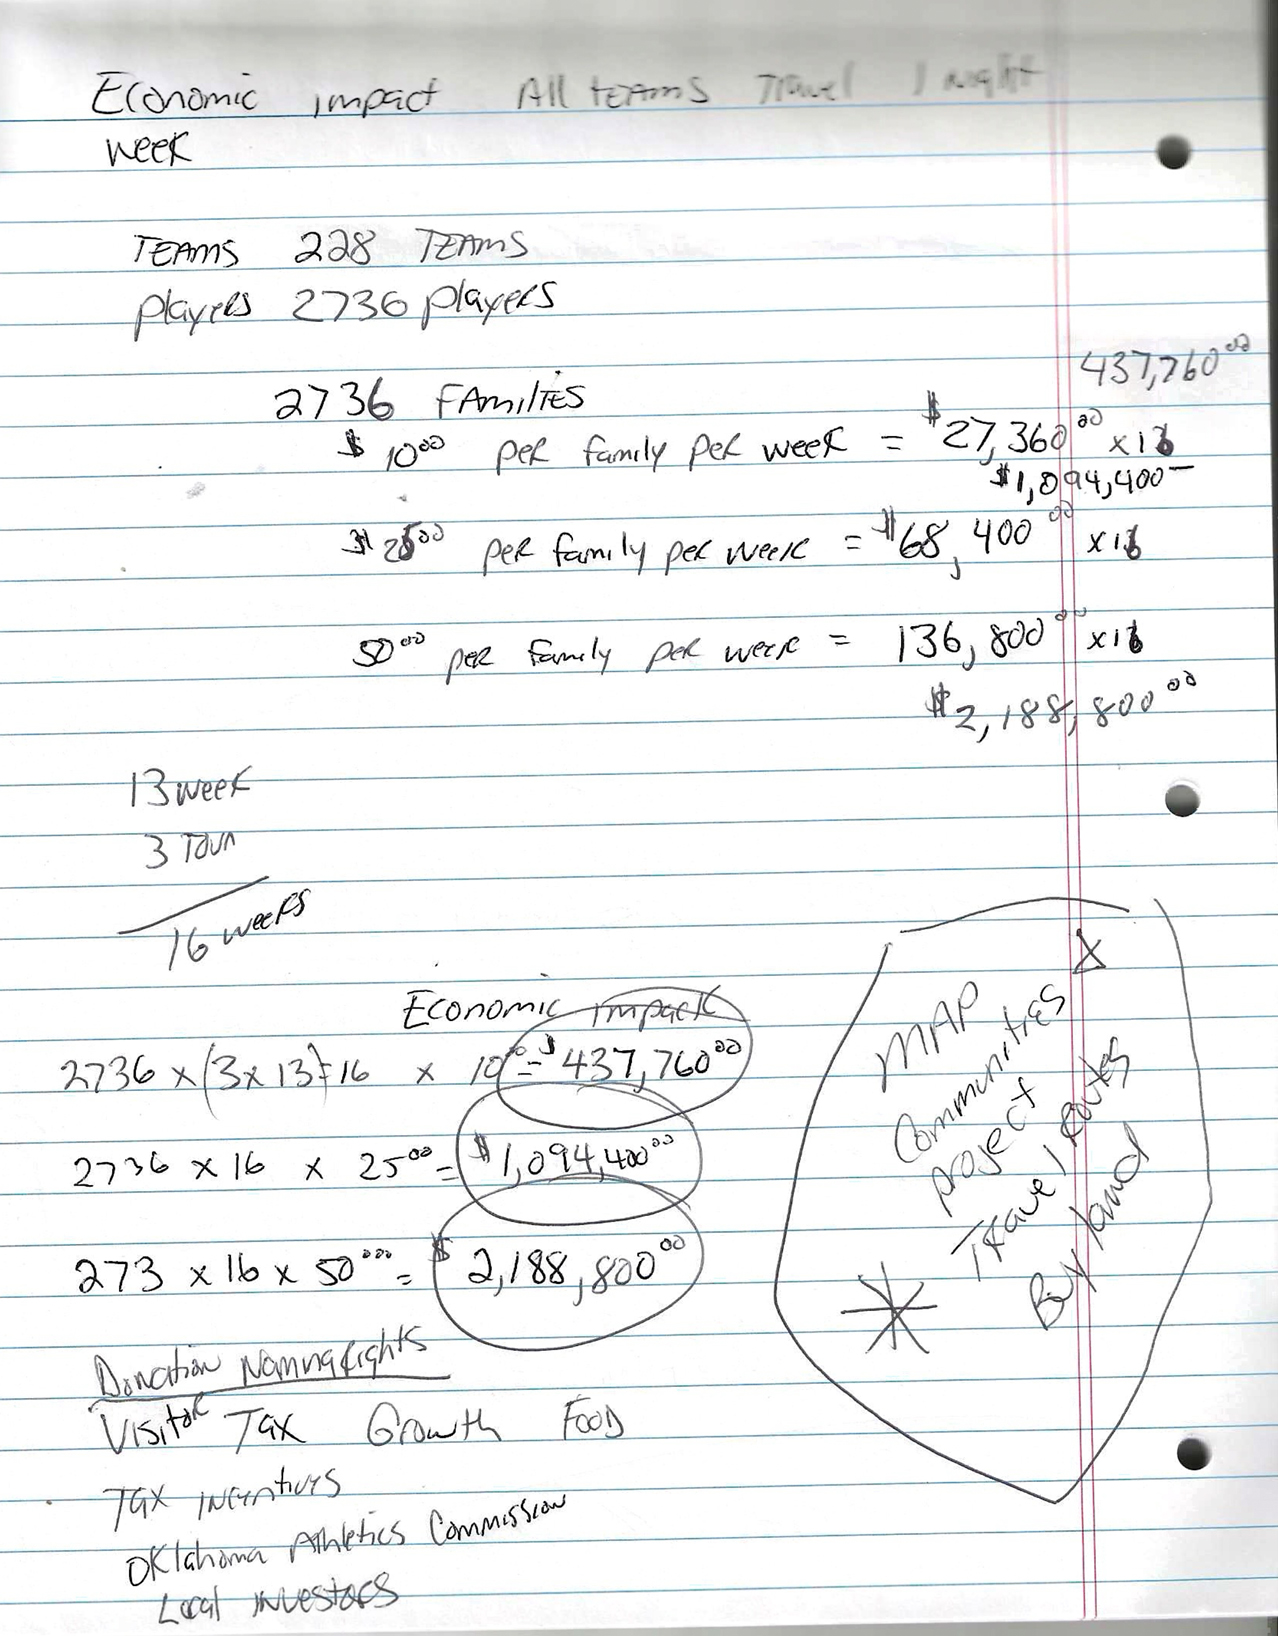 Economic impact All teams Travel 1 night
week
TEAMS 228 TEAMS
players 2736 players
437,760.00
2736 FAMILIES
$ 10.00 per family per week = $27,360.00 x16
$1,094,400-
$ 25.00 per family per week = $68,400.00 x16
50.00 per family per week = 136,800.00 x16
$2,188,800.00
13 week
3 Tour
16 weeks
Economic impack
2736 x (3x13)=16 x 10.00 = $437,760.00
2736 x 16 x 25.00 = $1,094,400.00
273 x 16 x 50.000 = $2,188,800.00
X
MAP
Communities
project
Travel Routes
Buy land
Donation Naming Rights
Visitor Tax Growth Food
Tax incentives
Oklahoma Athletics Commission
Local investors